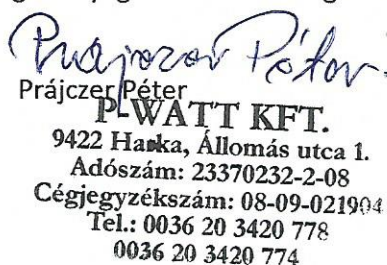 Prájczer Péter
Prájczer Péter
P-WATT KFT.
9422 Harka, Állomás utca 1.
Adószám: 23370232-2-08
Cégjegyzékszám: 08-09-021904
Tel.: 0036 20 3420 778
0036 20 3420 774